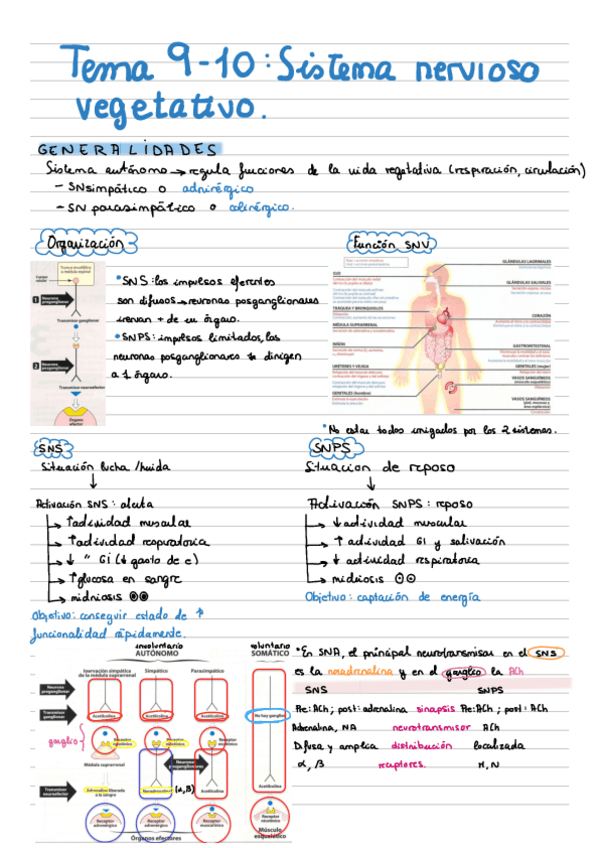 Tema 9-10: Sistema nervioso
vegetativo.
GENERALIDADES
Sistema autónomo → regula funciones de la vida vegetativa (respiración, circulación)
- SNsimpático o adrinérgico
- SN parasimpático o colinérgico.
Organización
Función SNV
• SNS: los impulsos eferentes
son difusos → neuronas posganglionares
inervan + de un órgano.
• SNPS: impulsos limitados, las
neuronas posganglionares se dirigen
a 1 órgano.
GLÁNDULAS LAGRIMALES
GLÁNDULAS SALIVALES
OJO
TRÁQUEA Y BRONQUIOLOS
CORAZÓN
MÉDULA SUPRARRENAL
RIÑÓN
GASTROINTESTINAL
URÉTERES Y VEJIGA
GENITALES (mujer)
GENITALES (hombre)
VASOS SANGUÍNEOS
VASOS SANGUÍNEOS
Neurona preganglionar
Transmisor ganglionar
Transmisor neuroefector
Órgano efector
• No están todos inrigados por los 2 sistemas.
SNS
Situación lucha /huida
↓
Activación SNS: alerta
↑actividad muscular
↑actividad respiratoria
↓ " GI (↓ gasto de e)
↑glucosa en sangre
midriosis
Objetivo: conseguir estado de ↑
funcionalidad rápidamente.
SNPS
Situacion de reposo
↓
Activación SNPS: reposo
↓ actividad muscular
↑ actividad GI y salivación
↓ actividad respiratoria
midriosis
Objetivo: captación de energía
involuntario
voluntario
AUTÓNOMO
SOMÁTICO
Inervación simpática de la médula suprarrenal
Simpático
Parasimpático
Neurona preganglionar
Transmisor ganglionar
Acetilcolina
Acetilcolina
Acetilcolina
No hay ganglios
ganglio
Receptor nicotínico
Receptor nicotínico
Receptor nicotínico
Médula suprarrenal
Neuronas posganglionares
Transmisor neuroefector
Adrenalina liberada a la sangre
Noradrenalina
(α, β)
Acetilcolina
Acetilcolina
Receptor adrenérgico
Receptor adrenérgico
Receptor muscarínico
Receptor nicotínico
Órganos efectores
Músculo esquelético
• En SNA, el principal neurotransmisor en el SNS
es la noradrenalina y en el ganglio la ACh
SNS SNPS
Pre: ACh; post: adrenalina sinapsis Pre: ACh; post: ACh
Adrenalina, NA neurotransmisor ACh
Difusa y amplica distribución localizada
α, β receptores. M, N